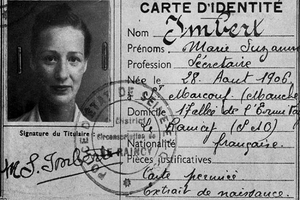 CARTE D'IDENTITÉ
Nom Imbert
Prénoms Marie Suzanne
Profession Secrétaire
Née le 28 Aout 1906
à Marcouf (Manche)
Domicile Allée de l'Ermitage
le Raincy (S et O)
Nationalité française.
Pièces justificatives
Carte
Extrait de naissance.
Signature du Titulaire :
M. S. Imbert
DE SEINE
RAINCY